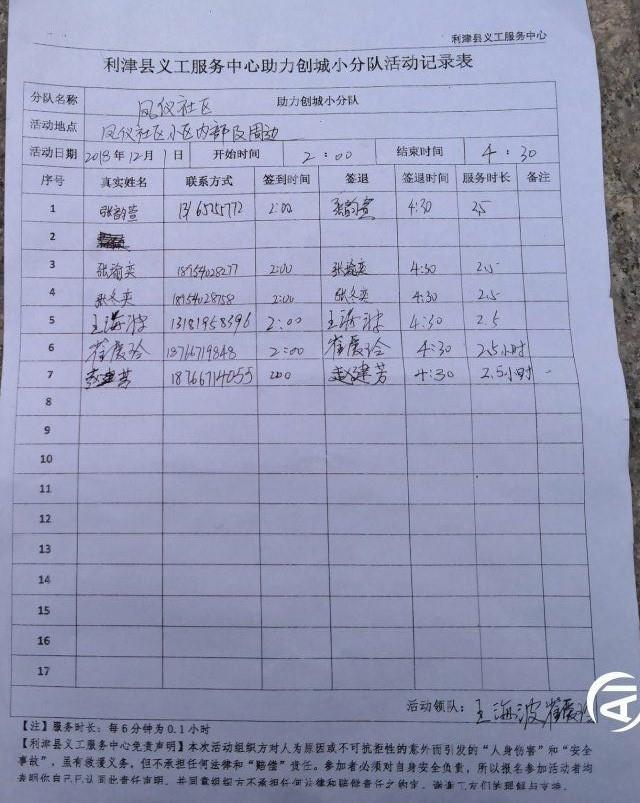 利津县义工服务中心
利津县义工服务中心助力创城小分队活动记录表
分队名称 凤仪社区 助力创城小分队
活动地点 凤仪社区小区内部及周边
活动日期 2018年12月1日 开始时间 2:00 结束时间 4:30
序号 真实姓名 联系方式 签到时间 签退 签退时间 服务时长 备注
1 张韵萱 2:00 张韵萱 4:30 2.5
2
3 张瑜奕 18954028277 2:00 张瑜奕 4:30 2.5
4 张冬奕 18954028758 2:00 张冬奕 4:30 2.5
5 王海波 13181958396 2:00 王海波 4:30 2.5
6 崔爱玲 18766719848 2:00 崔爱玲 4:30 2.5小时
7 赵建芳 18766714055 2:00 赵建芳 4:30 2.5小时
8
9
10
11
12
13
14
15
16
17
活动领队: 王海波 崔爱玲
【注】服务时长:每6分钟为0.1小时
【利津县义工服务中心免责声明】本次活动组织方对人为原因或不可抗拒性的意外而引发的“人身伤害”和“安全
事故”,虽有救援义务,但不承担任何法律和“赔偿”责任。参加者必须对自身安全负责,所以报名参加活动者均
表明你自己已认同此责任声明,并同意组织方不承担任何法律和赔偿责任之约定,谢谢义工们的理解与支持。